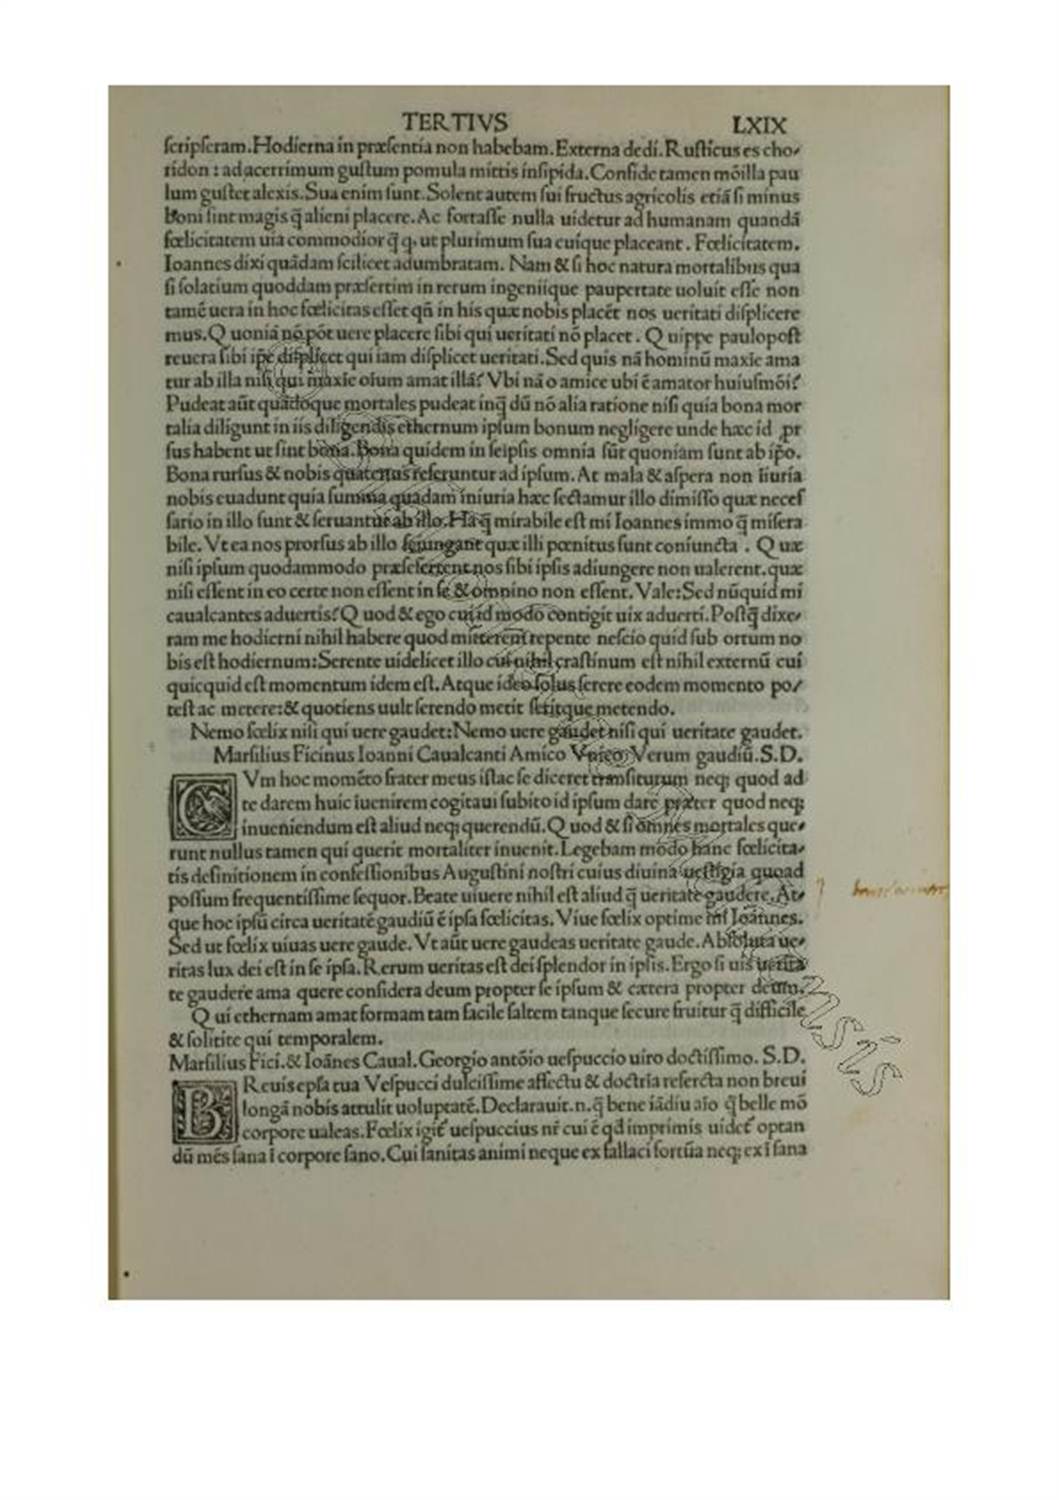 TERTIVS LXIX
scripseram. Hodierna in præsentia non habebam. Externa dedi. Rusticus es cho-
ridon : ad acerrimum gustum pomula mittis insipida. Confide tamen mōi illa pau
lum gustet alexis. Sua enim sunt. Solent autem sui fructus agricolis etiā si minus
boni sint magis q̄ alieni placere. Ac fortasse nulla uidetur ad humanam quandā
fœlicitatem uia commodior q̄ ꝙ ut plurimum sua cuique placeant. Fœlicitatem.
Ioannes dixi quādam scilicet adumbratam. Nam & si hoc natura mortalibus qua
si solatium quoddam præsertim in rerum ingeniique paupertate uoluit esse non
tamē uera in hoc fœlicitas esset qn̄ in his quæ nobis placēt nos ueritati displicere
mus. Quoniā nō pōt uere placere sibi qui ueritati nō placet. Quippe paulopost
reuera sibi ip̄e displicet qui iam displicet ueritati. Sed quis nā hominū maxie ama
tur ab illa nisi qui maxie oium amat illā? Vbi nā o amice ubi ē amator huiusmōi?
Pudeat aūt quādoque mortales pudeat inq̄ dū nō alia ratione nisi quia bona mor
talia diligunt in iis diligendis ethernum ipsum bonum negligere unde hæc id ꝓr
sus habent ut sint bona. Bona quidem in seipsis omnia sūt quoniam sunt ab ip̄o.
Bona rursus & nobis quatenus referuntur ad ipsum. At mala & aspera non īiuria
nobis euadunt quia summa quadam iniuria hæc sectamur illo dimisso quæ necef
sario in illo sunt & seruantur ab illo. Ha q̄ mirabile est mi Ioannes immo q̄ misera
bile. Vt ea nos prorsus ab illo seiungant quæ illi pœnitus sunt coniuncta . Quæ
nisi ipsum quodammodo præseferrent nos sibi ipsis adiungere non ualerent. quæ
nisi essent in eo certe non essent in se & omnino non essent. Vale: Sed nūquid mi
caualcantes aduertis? Quod & ego cuiād modo contigit uix aduerti. Postq̄ dixe-
ram me hodierni nihil habere quod mitterem repente nescio quid sub ortum no
bis est hodiernum: Serente uidelicet illo cui nihil crastinum est nihil externū cui
quicquid est momentum idem est. Atque ideo solus serere eodem momento po-
test ac metere: & quotiens uult serendo metit seritque metendo.
Nemo fœlix nisi qui uere gaudet: Nemo uere gaudet nisi qui ueritate gaudet.
Marsilius Ficinus Ioanni Caualcanti Amico Vnico Verum gaudiū. S. D.
CVm hoc momēto frater meus istac se diceret transiturum neq; quod ad
te darem huic iuenirem cogitaui subito id ipsum dare præter quod neq;
inueniendum est aliud neq; querendū. Quod & si omnes mortales que-
runt nullus tamen qui querit mortaliter inuenit. Legebam modo hanc fœlicita-
tis definitionem in confessionibus Augustini nostri cuius diuina uestigia quoad
possum frequentissime sequor. Beate uiuere nihil est aliud q̄ ueritate gaudere. At-
que hoc ipsū circa ueritatē gaudiū ē ipsa fœlicitas. Viue fœlix optime mi Ioannes.
Sed ut fœlix uiuas uere gaude. Vt aūt uere gaudeas ueritate gaude. Absoluta ue-
ritas lux dei est in se ipsa. Rerum ueritas est dei splendor in ipsis. Ergo si uis uerita
te gaudere ama quere considera deum propter se ipsum & cætera propter deum.
Qui ethernam amat formam tam facile saltem tanque secure fruitur q̄ difficile
& solitite qui temporalem.
Marsilius Fici. & Ioānes Caual. Georgio antōio uespuccio uiro doctissimo. S. D.
BReuis epsa tua Vespucci dulcissime affectu & doctria referta non breui
longā nobis attulit uoluptatē. Declarauit. n. q̄ bene iādiu aio q̄ belle mō
corpore ualeas. Fœlix igit uespuccius nr̄ cui ē qd imprimis uidet optan
dū mēs sana ī corpore sano. Cui sanitas animi neque ex fallaci fortūa neq; ex ī sana